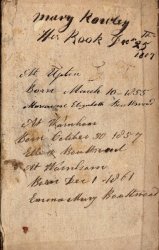 Mary Rowley
Her Book Dec 25th
1807
At Upton
Born March 10 1855
Marianne Elizabeth Boulkwood
At Warnham
Born October 30 1857
Boulkwood
At Warnham
Born Dec 1 1861
Emma Mary Boulkwood